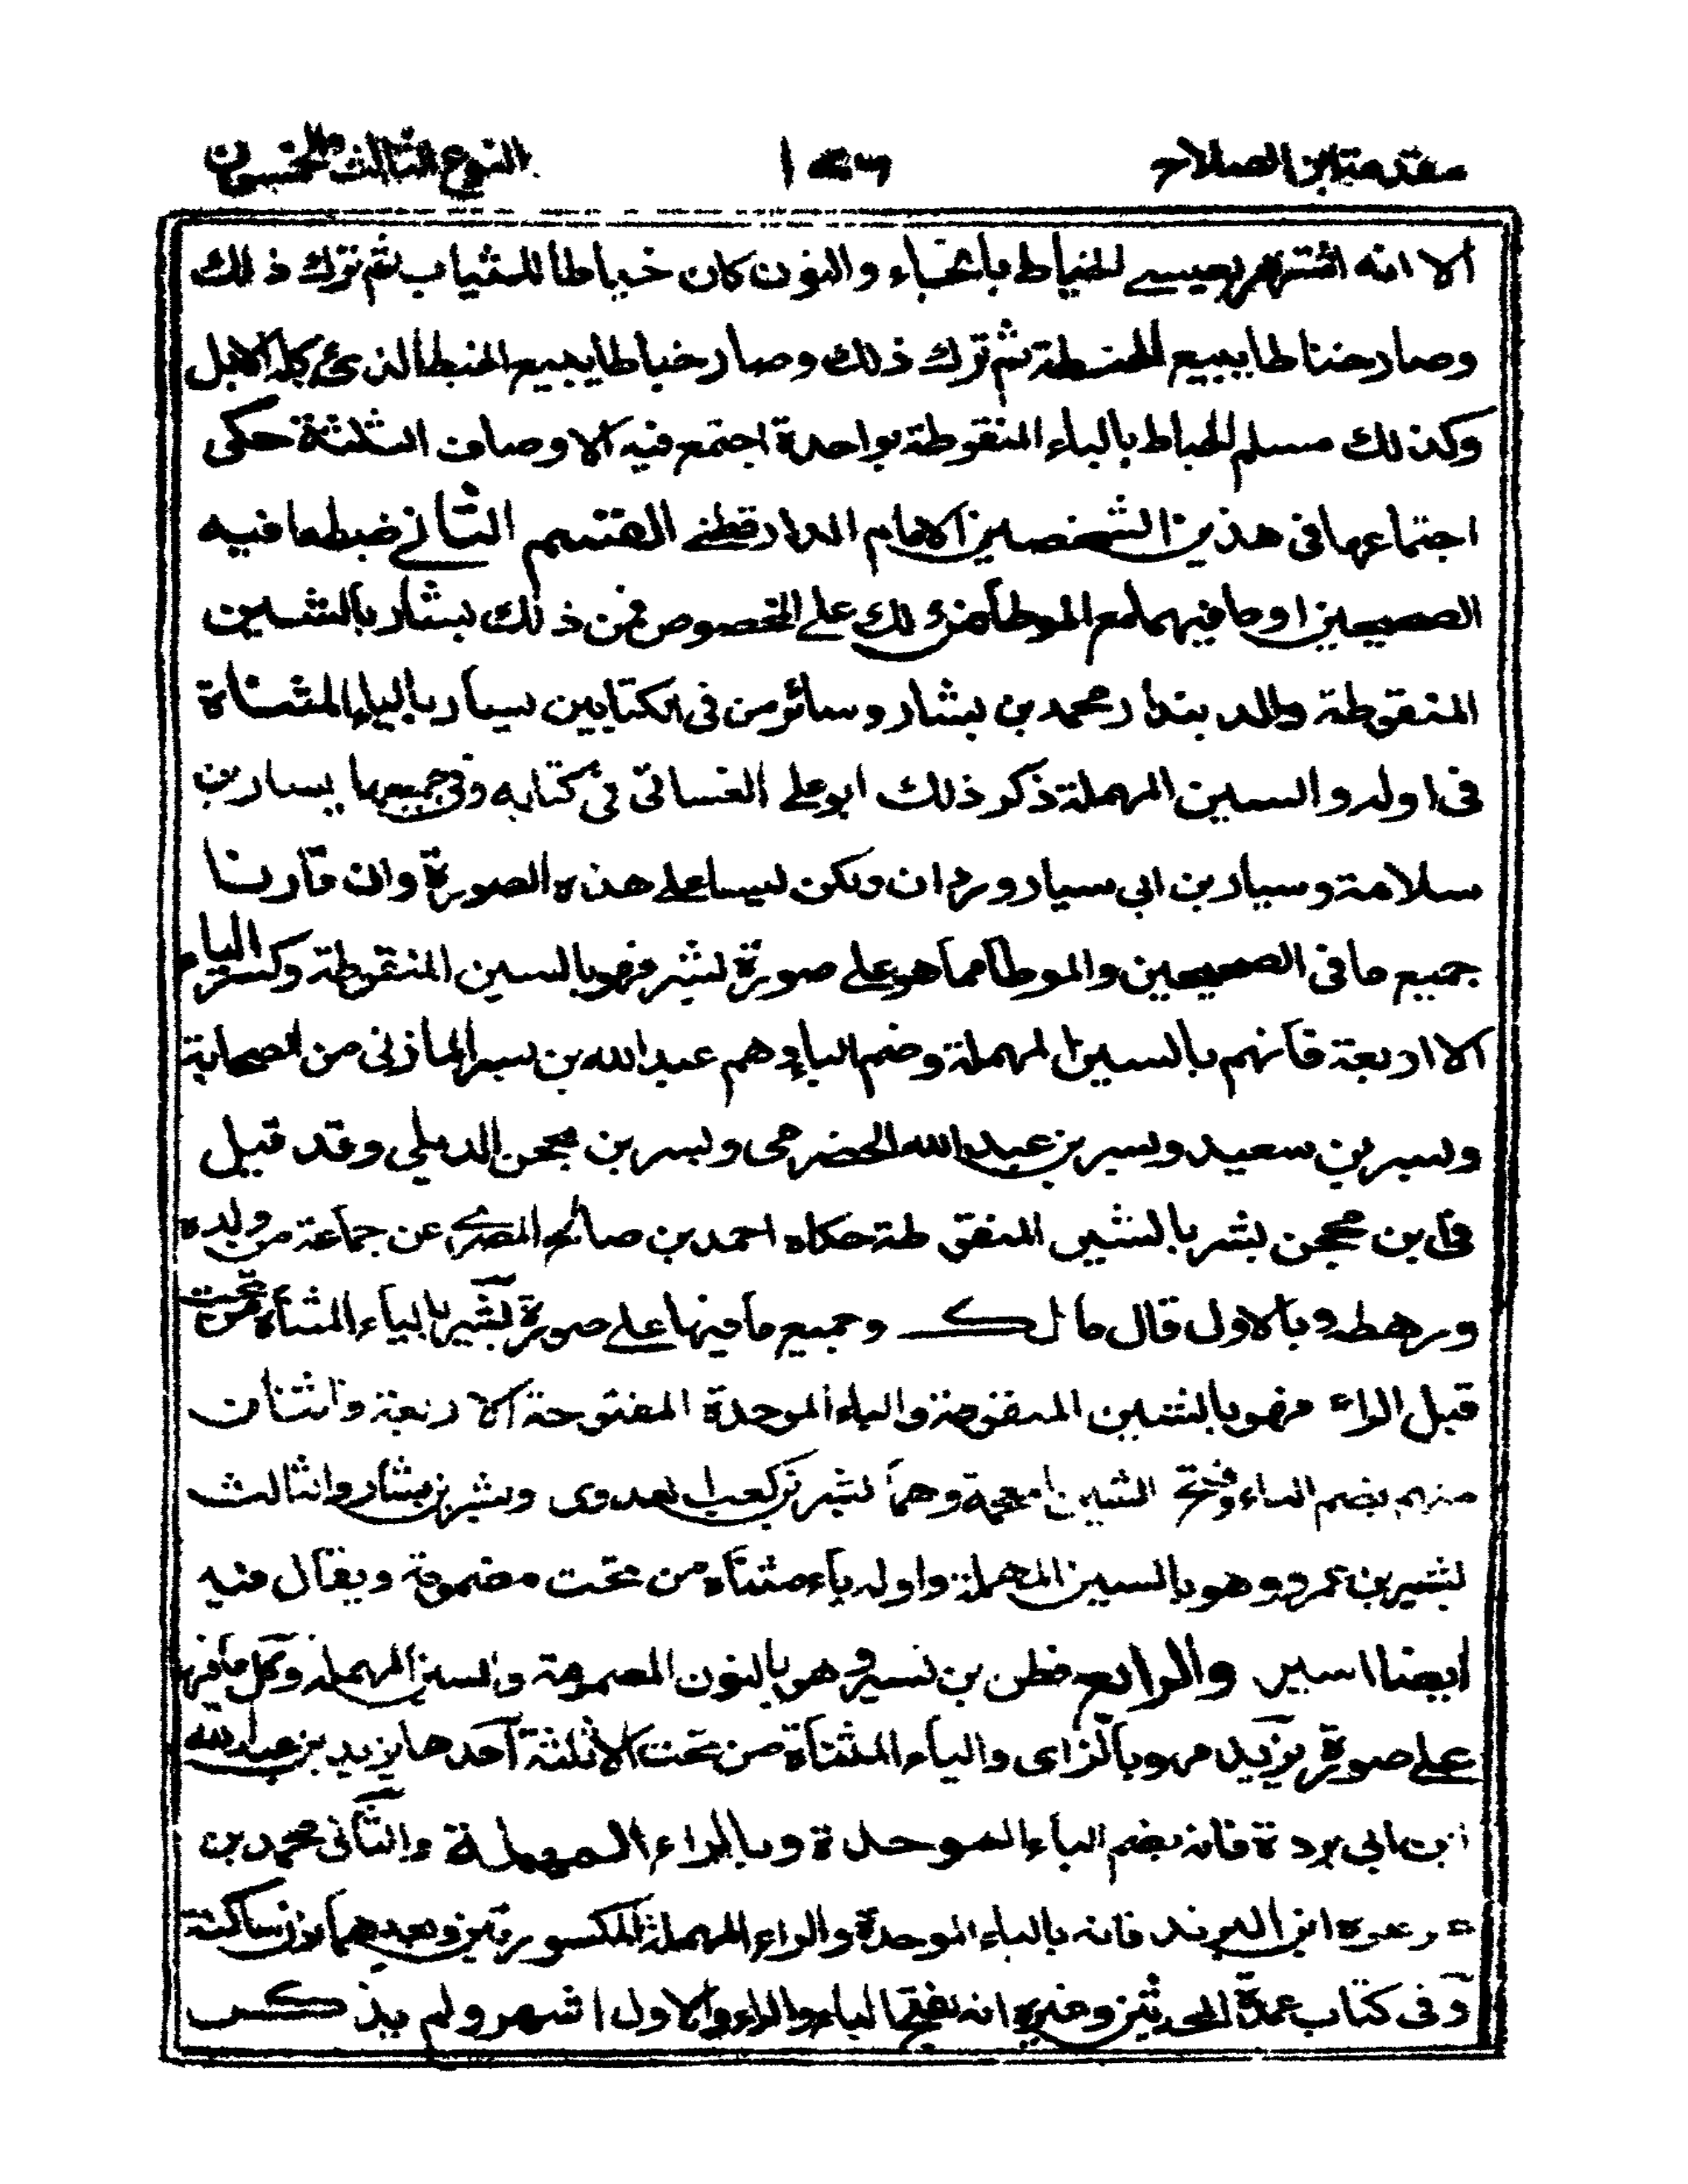 مقدمة ابن الصلاح
النوع الثالث والخمسون
الا انه اشتهر بعيسى الخياط بالخاء والنون كان خياطا للثياب ثم ترك ذلك
وصار حناطا يبيع الحنطة ثم ترك ذلك وصار خباطا يبيع الخبط الذي ياكله الابل
وكذلك مسلم الخباط بالباء المنقوطة بواحدة اجتمع فيه الاوصاف الثلثة حكى
اجتماعها في هذين الشخصين الامام الدارقطني القسم الثاني ضبط ما فيه
الصحيحين او ما فيهما مع الموطأ من ذلك على الخصوص فمن ذلك بشار بالشين
المنقوطة والد بندار محمد بن بشار وسائر من في الكتابين يسار بالياء المثناة
في اوله والسين المهملة ذكر ذلك ابو علي الغساني في كتابه وفي جميعها يسار بن
سلامة وسيار بن ابي سيار وردان ولكن ليسا على هذه الصورة وان قاربنا
جميع ما في الصحيحين والموطأ مما هو على صورة بشر فهو بالسين المنقوطة وكسر الباء
الا اربعة فانهم بالسين المهملة وضم الباء وهم عبد الله بن بسر المازني من الصحابة
وبسر بن سعيد وبسر بن عبد الله الحضرمي وبسر بن محجن الديلي وقد قيل
في ابن محجن بشر بالشين المنقوطة حكاه احمد بن صالح المصري عن جماعة من ولده
ورهطه وبالاول قال مالك وجميع ما فيها على صورة بشير بالياء المثناة من تحت
قبل الراء فهو بالشين المنقوطة والباء الموحدة المفتوحة الا اربعة فاثنان
منهم بضم الباء وفتح الشين المعجمة وهما بشير بن كعب العدوي وبشير بن بشار والثالث
بشير بن عمرو وهو بالسين المهملة واوله ياء مثناة من تحت مضمومة ويقال فيه
ايضا اسير والرابع قطن بن نسير وهو بالنون المضمومة والسين المهملة وكل ما فيها
على صورة يزيد فهو بالزاى والياء المثناة من تحت الا ثلثة احدها بريد بن عبد الله
ابن ابي بردة فانه بضم الباء الموحدة وبالراء المهملة والثاني محمد بن
عرعرة ابن البرند فانه بالباء الموحدة والراء المهملة المكسورتين وبعدهما نون ساكنة
وفي كتاب عمدة المحدثين وغيره انه بفتح الباء والراء والاول اشهر ولم يذكر